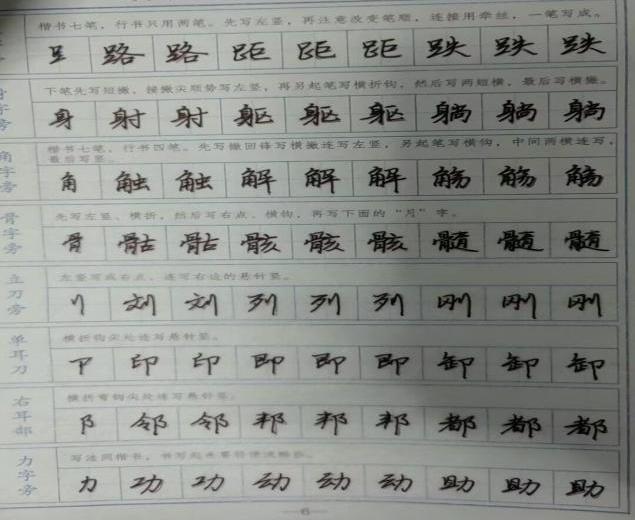 楷书七笔，行书只用两笔。先写左竖，再注意改变笔顺，连接用牵丝，一笔写成。
路 路 距 距 距 跌 跌 跌
字旁
下笔先写短撇，接撇尖顺势写左竖，再另起笔写横折钩，然后写两短横，最后写横撇。
身 射 射 躯 躯 躯 躺 躺 躺
角字旁
楷书七笔，行书四笔。先写撇回锋写横撇连写左竖，另起笔写横钩，中间两横连写，
最后写竖。
角 触 触 解 解 解 觞 觞 觞
骨字旁
先写左竖、横折，然后写右点、横钩，再写下面的“月”字。
骨 骷 骷 骸 骸 骸 髓 髓 髓
立刀旁
左竖写成右点，连写右边的悬针竖。
刂 刘 刘 列 列 列 刚 刚 刚
单耳刀
横折钩尖处连写悬针竖。
卩 印 印 即 即 即 卸 卸 卸
右耳部
横折弯钩尖处连写悬针竖。
阝 邻 邻 邦 邦 邦 都 都 都
力字旁
写法同楷书，书写起来要轻便流畅些。
力 功 功 动 动 动 助 助 助
6